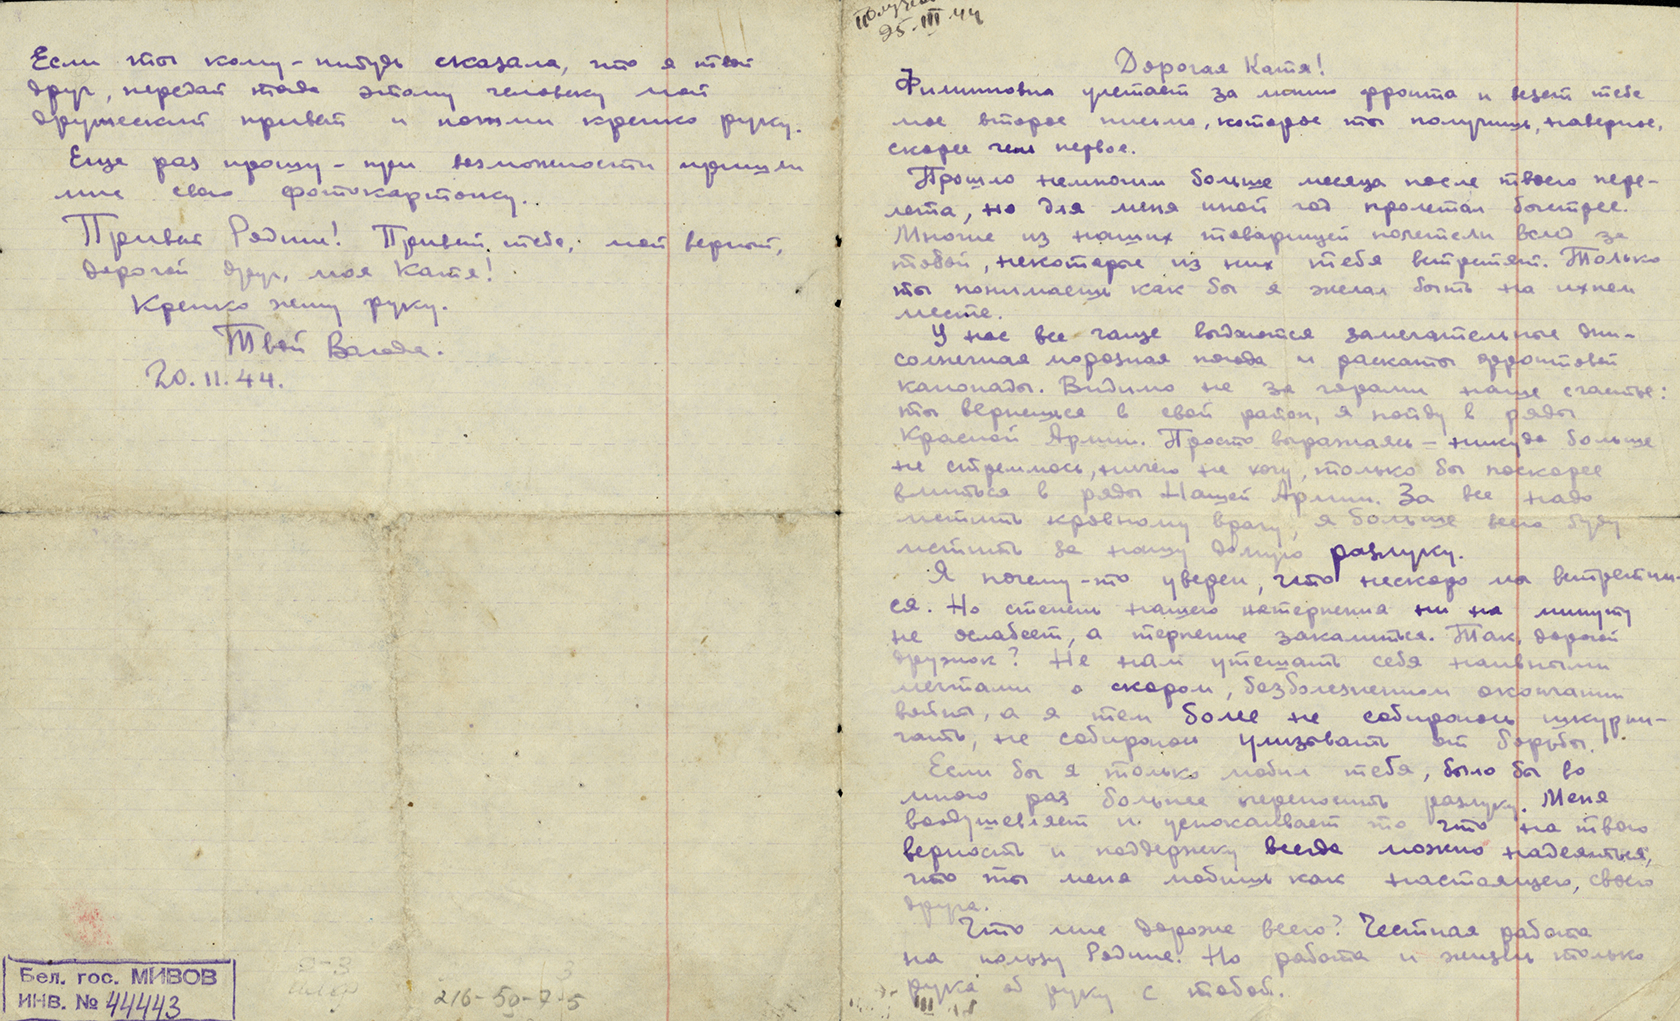 25.III.44
Дорогая Катя!
Филипповна улетает за линию фронта и везет тебе
мое второе письмо, которое ты получишь, наверное,
скорее чем первое.
Прошло немногим больше месяца после твоего пере-
лета, но для меня иной год пролетал быстрее.
Многие из наших товарищей полетели вслед за
тобой, некоторые из них тебя встретят. Только
ты понимаешь как бы я желал быть на ихнем
месте.
У нас все чаще выдаются замечательные дни -
солнечная морозная погода и раскаты фронтовой
канонады. Видимо не за горами наше счастье:
ты вернешься в свой район, я пойду в ряды
Красной Армии. Просто выражаясь - никуда больше
не стремлюсь, ничего не хочу, только бы поскорее
влиться в ряды Нашей Армии. За все надо
мстить кровному врагу, я больше всего буду
мстить за нашу долгую разлуку.
Я почему-то уверен, что нескоро мы встретим-
ся. Но степень нашего нетерпения ни на минуту
не ослабеет, а терпение закалиться. Так, дорогой
дружок? Не нам утешать себя наивными
мечтами о скором, безболезненном окончании
войны, а я тем более не собираюсь шкурни-
чать, не собираюсь улизывать от борьбы.
Если бы я только любил тебя, было бы во
много раз больнее переносить разлуку. Меня
воодушевляет и успокаивает то что на твою
верность и поддержку всегда можно надеяться,
что ты меня любишь как настоящего, своего
друга.
Что мне дороже всего? Честная работа
на пользу Родине. Но работа и жизнь только
рука об руку с тобой.
III
Если ты кому-нибудь сказала, что я твой
друг, передай тогда этому человеку мой
дружеский привет и пожми крепко руку.
Еще раз прошу - при возможности пришли
мне свою фотокарточку.
Привет Родине! Привет тебе, мой верный,
дорогой друг, моя Катя!
Крепко жму руку.
Твой Володя.
20.II.44.
Бел. гос. МИВОВ
ИНВ. № 44443
216-50-7-5